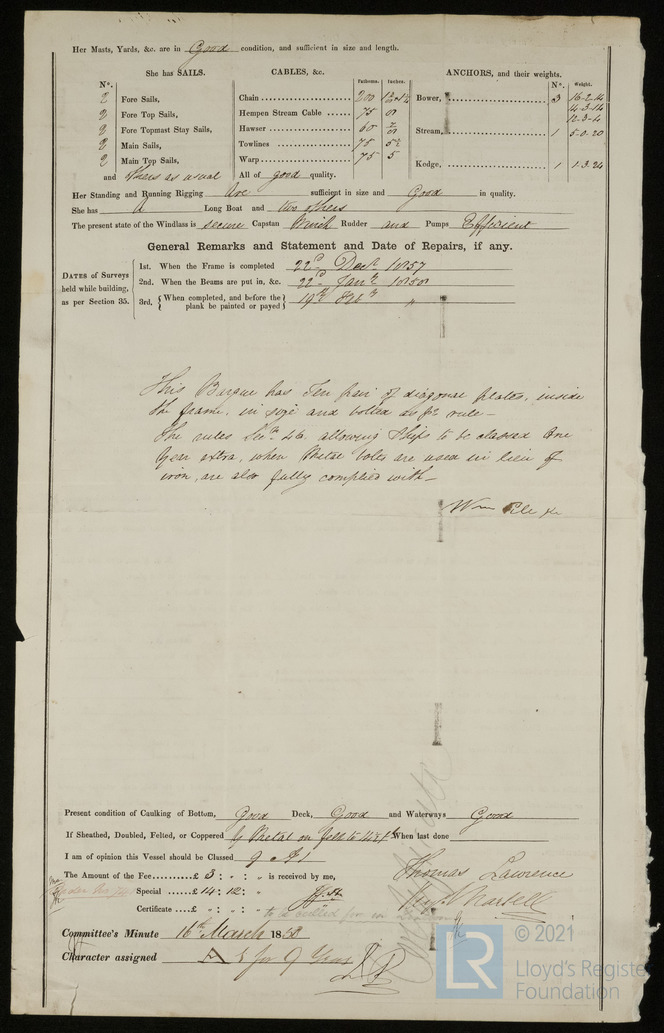 Her Masts, Yards, &c. are in Good condition, and sufficient in size and length.
She has SAILS.
N°.
2 Fore Sails,
2 Fore Top Sails,
2 Fore Topmast Stay Sails,
2 Main Sails,
2 Main Top Sails,
and others as usual
CABLES, &c.
Fathoms. Inches.
Chain 200
Hempen Stream Cable 75 8
Hawser 60
Towlines 75 5½
Warp 75 5
All of good quality.
ANCHORS, and their weights.
N°. Weight.
Bower, 3 16-2-14
14-3-14
12-3-4
Stream, 1 5-0-20
Kedge, 1 1-3-24
Her Standing and Running Rigging sufficient in size and Good in quality.
She has A Long Boat and two others
The present state of the Windlass is secure Capstan Winch Rudder and Pumps Efficient
General Remarks and Statement and Date of Repairs, if any.
DATES of Surveys held while building, as per Section 35.
1st. When the Frame is completed 22d Decr 1857
2nd. When the Beams are put in, &c. 22d Jany 1858
3rd. {When completed, and before the plank be painted or payed} 19th Feby "
This Barque has Ten pair of diagonal plates, inside
the frame, in size and bolted as pr rule—
The rules Secn. 46. allowing Ships to be classed One
Year extra, when Metal bolts are used in lieu of
iron, are also fully complied with—
Wm Pile Jr
Present condition of Caulking of Bottom, Good Deck, Good and Waterways Good
If Sheathed, Doubled, Felted, or Coppered Y Metal on felt to When last done
I am of opinion this Vessel should be Classed 9 A 1
The Amount of the Fee £ 3 : " : " is received by me,
Special £ 14 : 12 : "
Certificate £ " : " : "
to be called for in London
Thomas Lawrence
Martell
Committee's Minute 16th March 1858
Character assigned A 1 for 9 Years
© 2021
LR
Lloyd's Register
Foundation